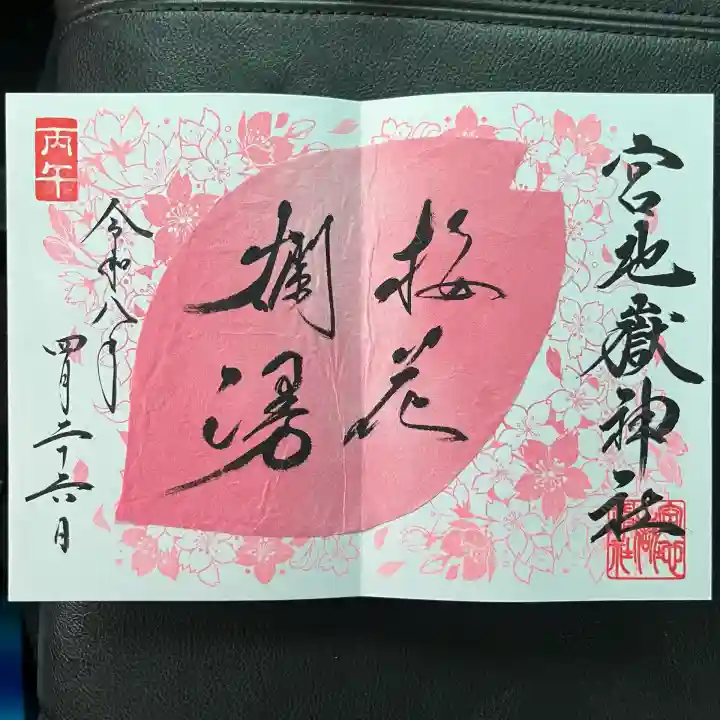 宮地嶽神社
桜花
爛漫
丙午
令和八年
四月二十六日